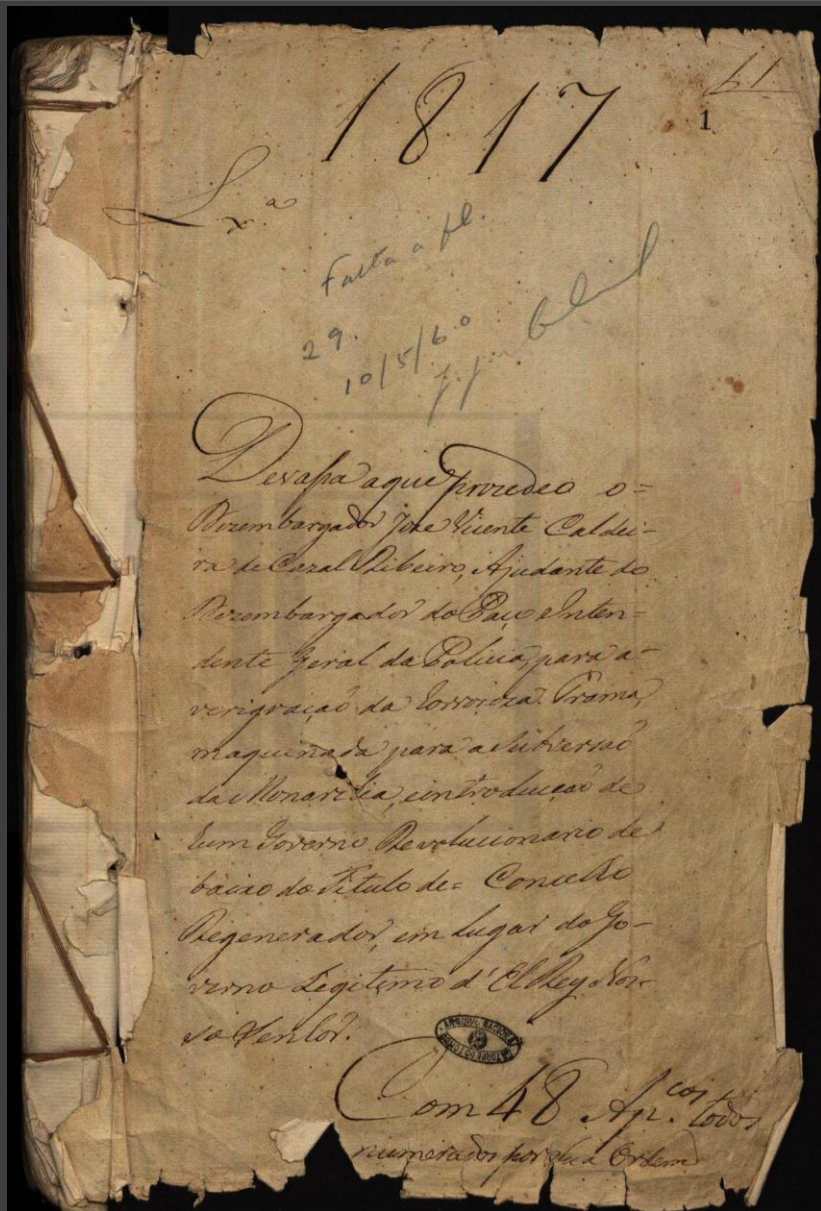 61
1817
1
Lxª
Falta a fl.
29.
10/5/60
Devassa a que procedeo o=
Dezembargador Joze Vicente Caldei-
ra de Cazal Ribeiro, Ajudante do
Dezembargador do Paço e Inten=
dente Geral da Policia, para a-
verigoação da horroroza Trama,
maquinada para a subversaõ
da Monarchia, e introducçaõ de
hum Governo Revolucionario de
baixo do Titulo de= Concelho
Regenerador, em lugar do Go-
verno Legitimo d'El Rey Nos-
so Senhor.
Com 48 Ap.cos todos
numerados por sua Ordem